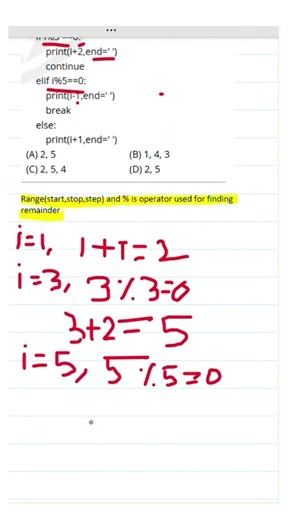 if i%3 ==0:
print(i+2,end=' ')
continue
elif i%5==0:
print(i-1,end=' ')
break
else:
print(i+1,end=' ')
(A) 2, 5 (B) 1, 4, 3
(C) 2, 5, 4 (D) 2, 5
Range(start,stop,step) and % is operator used for finding
remainder
i=1, 1+1=2
i=3, 3%3=0
3+2=5
i=5, 5%5=0